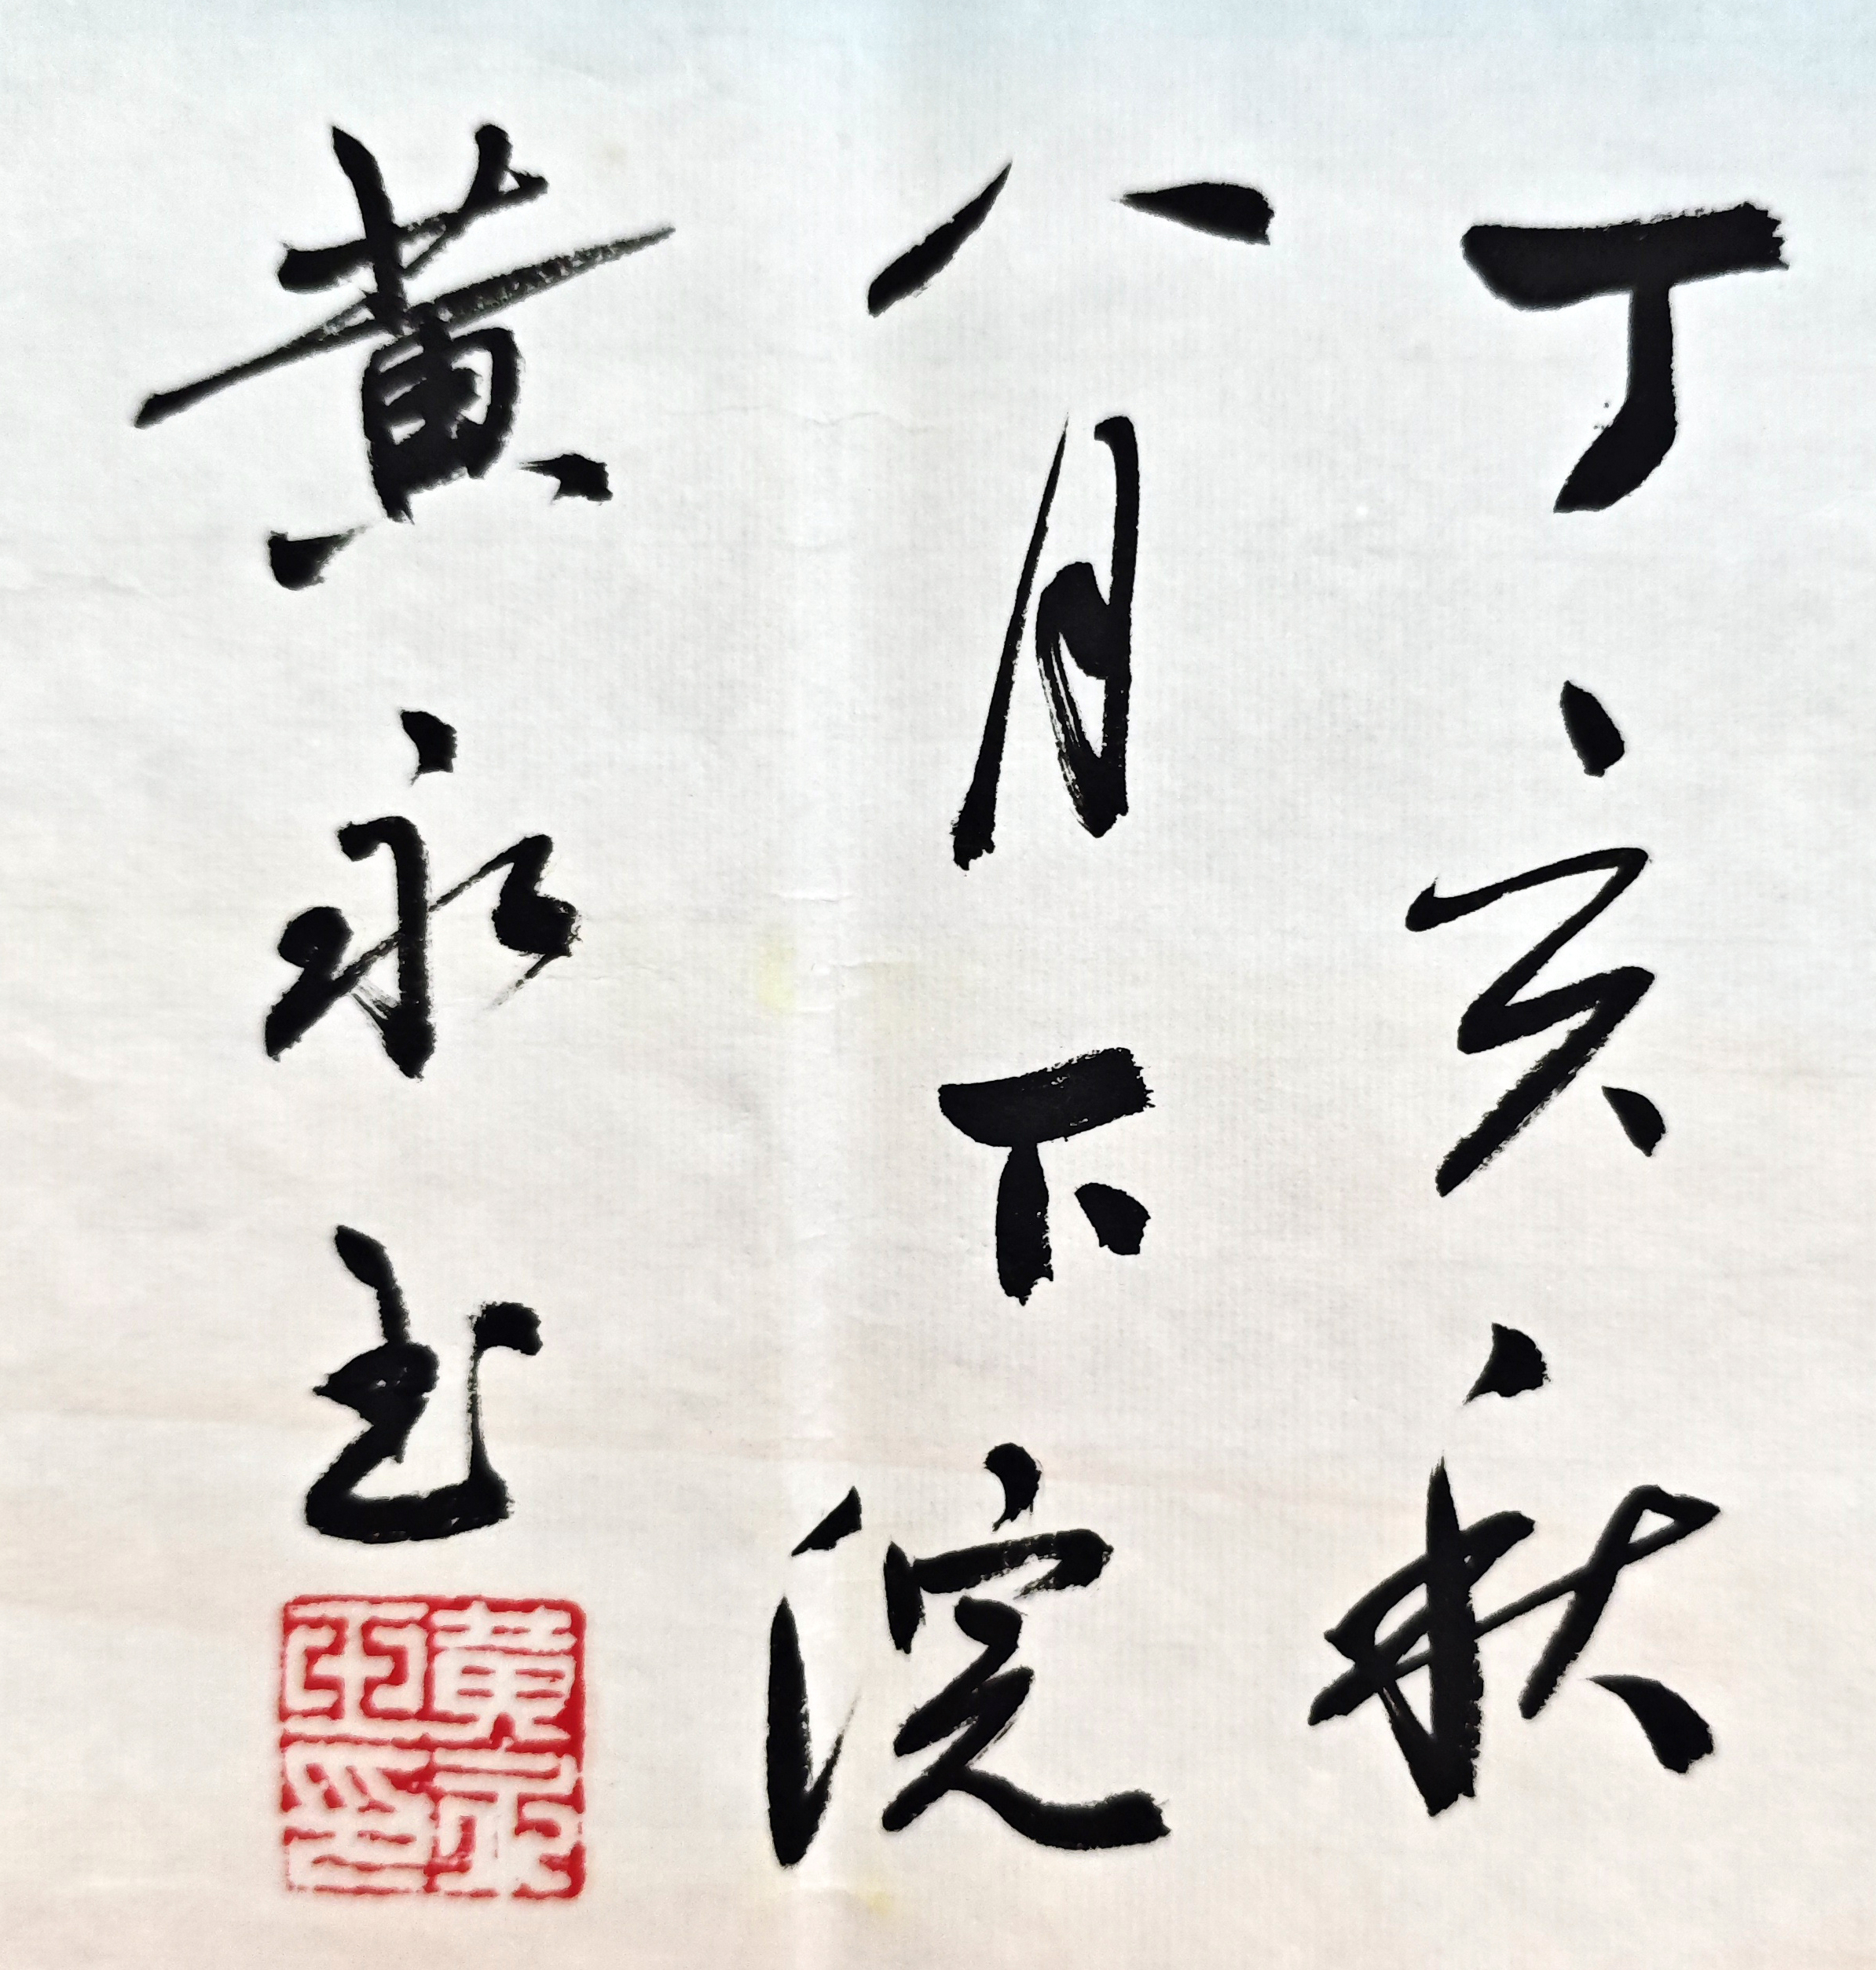 丁亥秋
八月下浣
黄永玉
黄永玉印